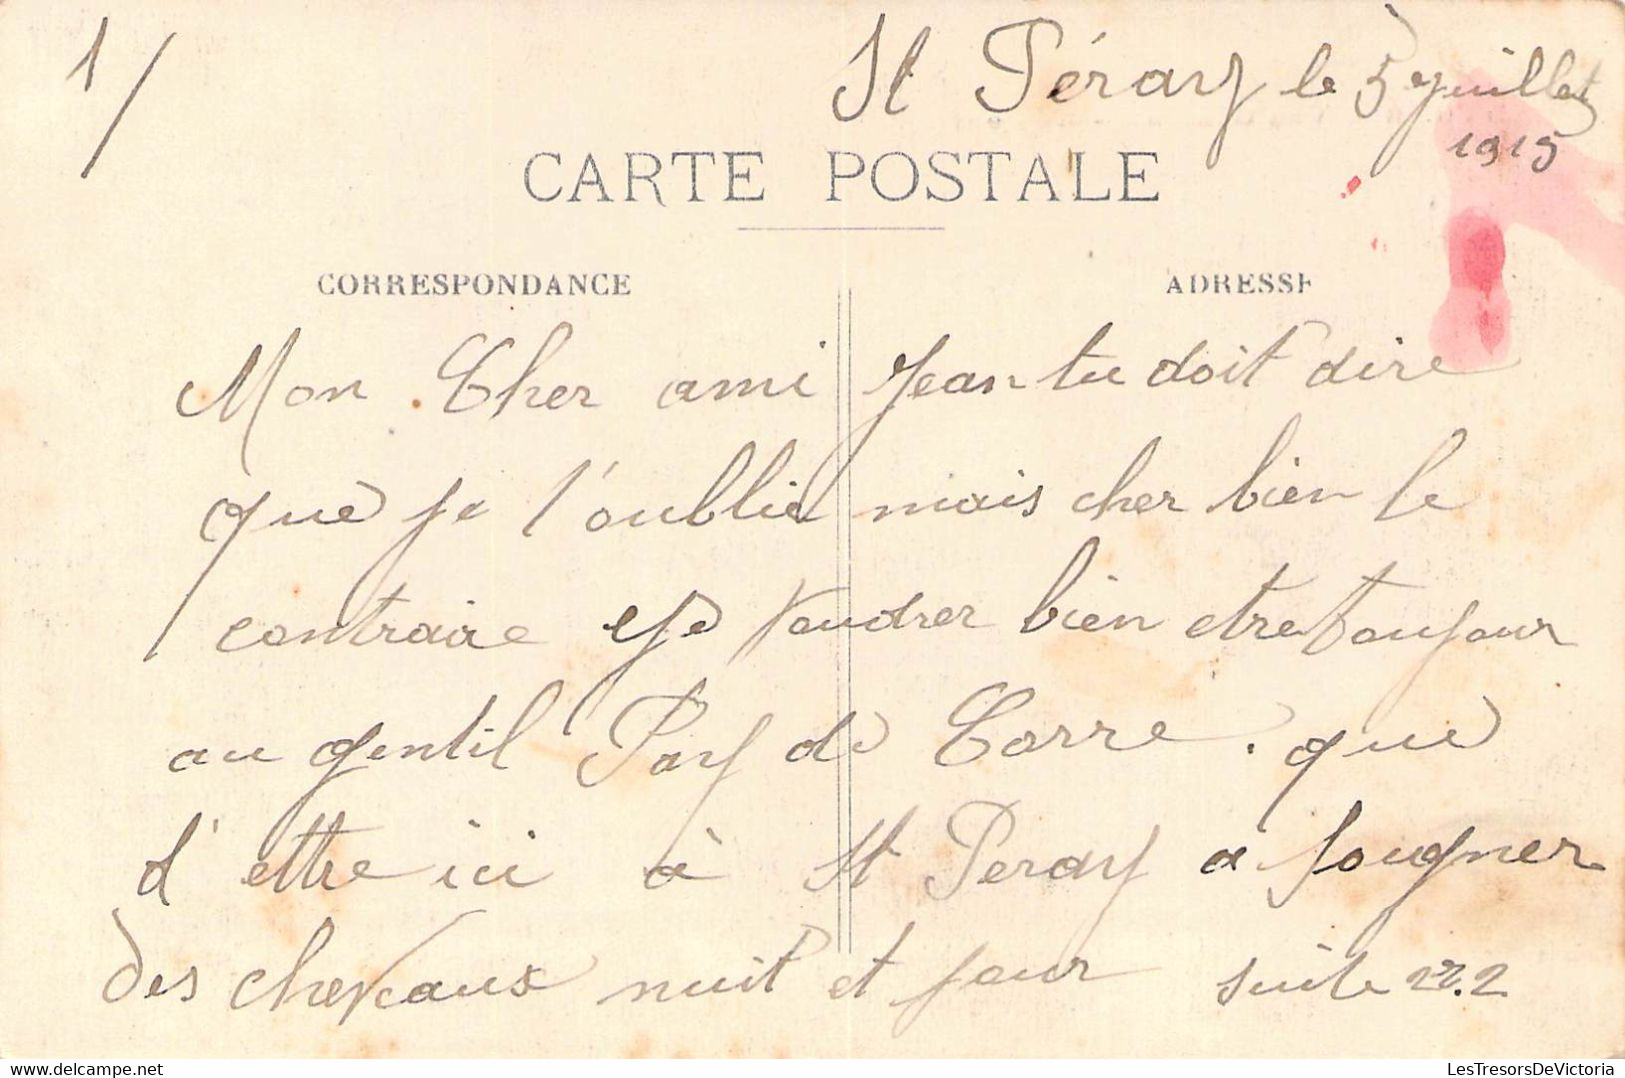 1/
St Péray le 5 juillet
1915
CARTE POSTALE
CORRESPONDANCE
ADRESSE
Mon Cher ami Jean tu doit dire
que je t'oublie mais cher bien le
contraire je voudrer bien etre toujour
au gentil Pay de Corre. que
d'ettre ici à St Peray a sougner
des chevaux nuit et jour suite n.2
LesTresorsDeVictoria